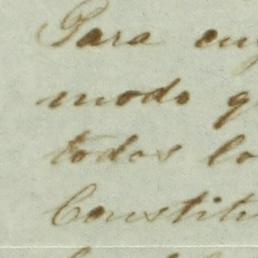 Para
modo
todos lo
Constitu